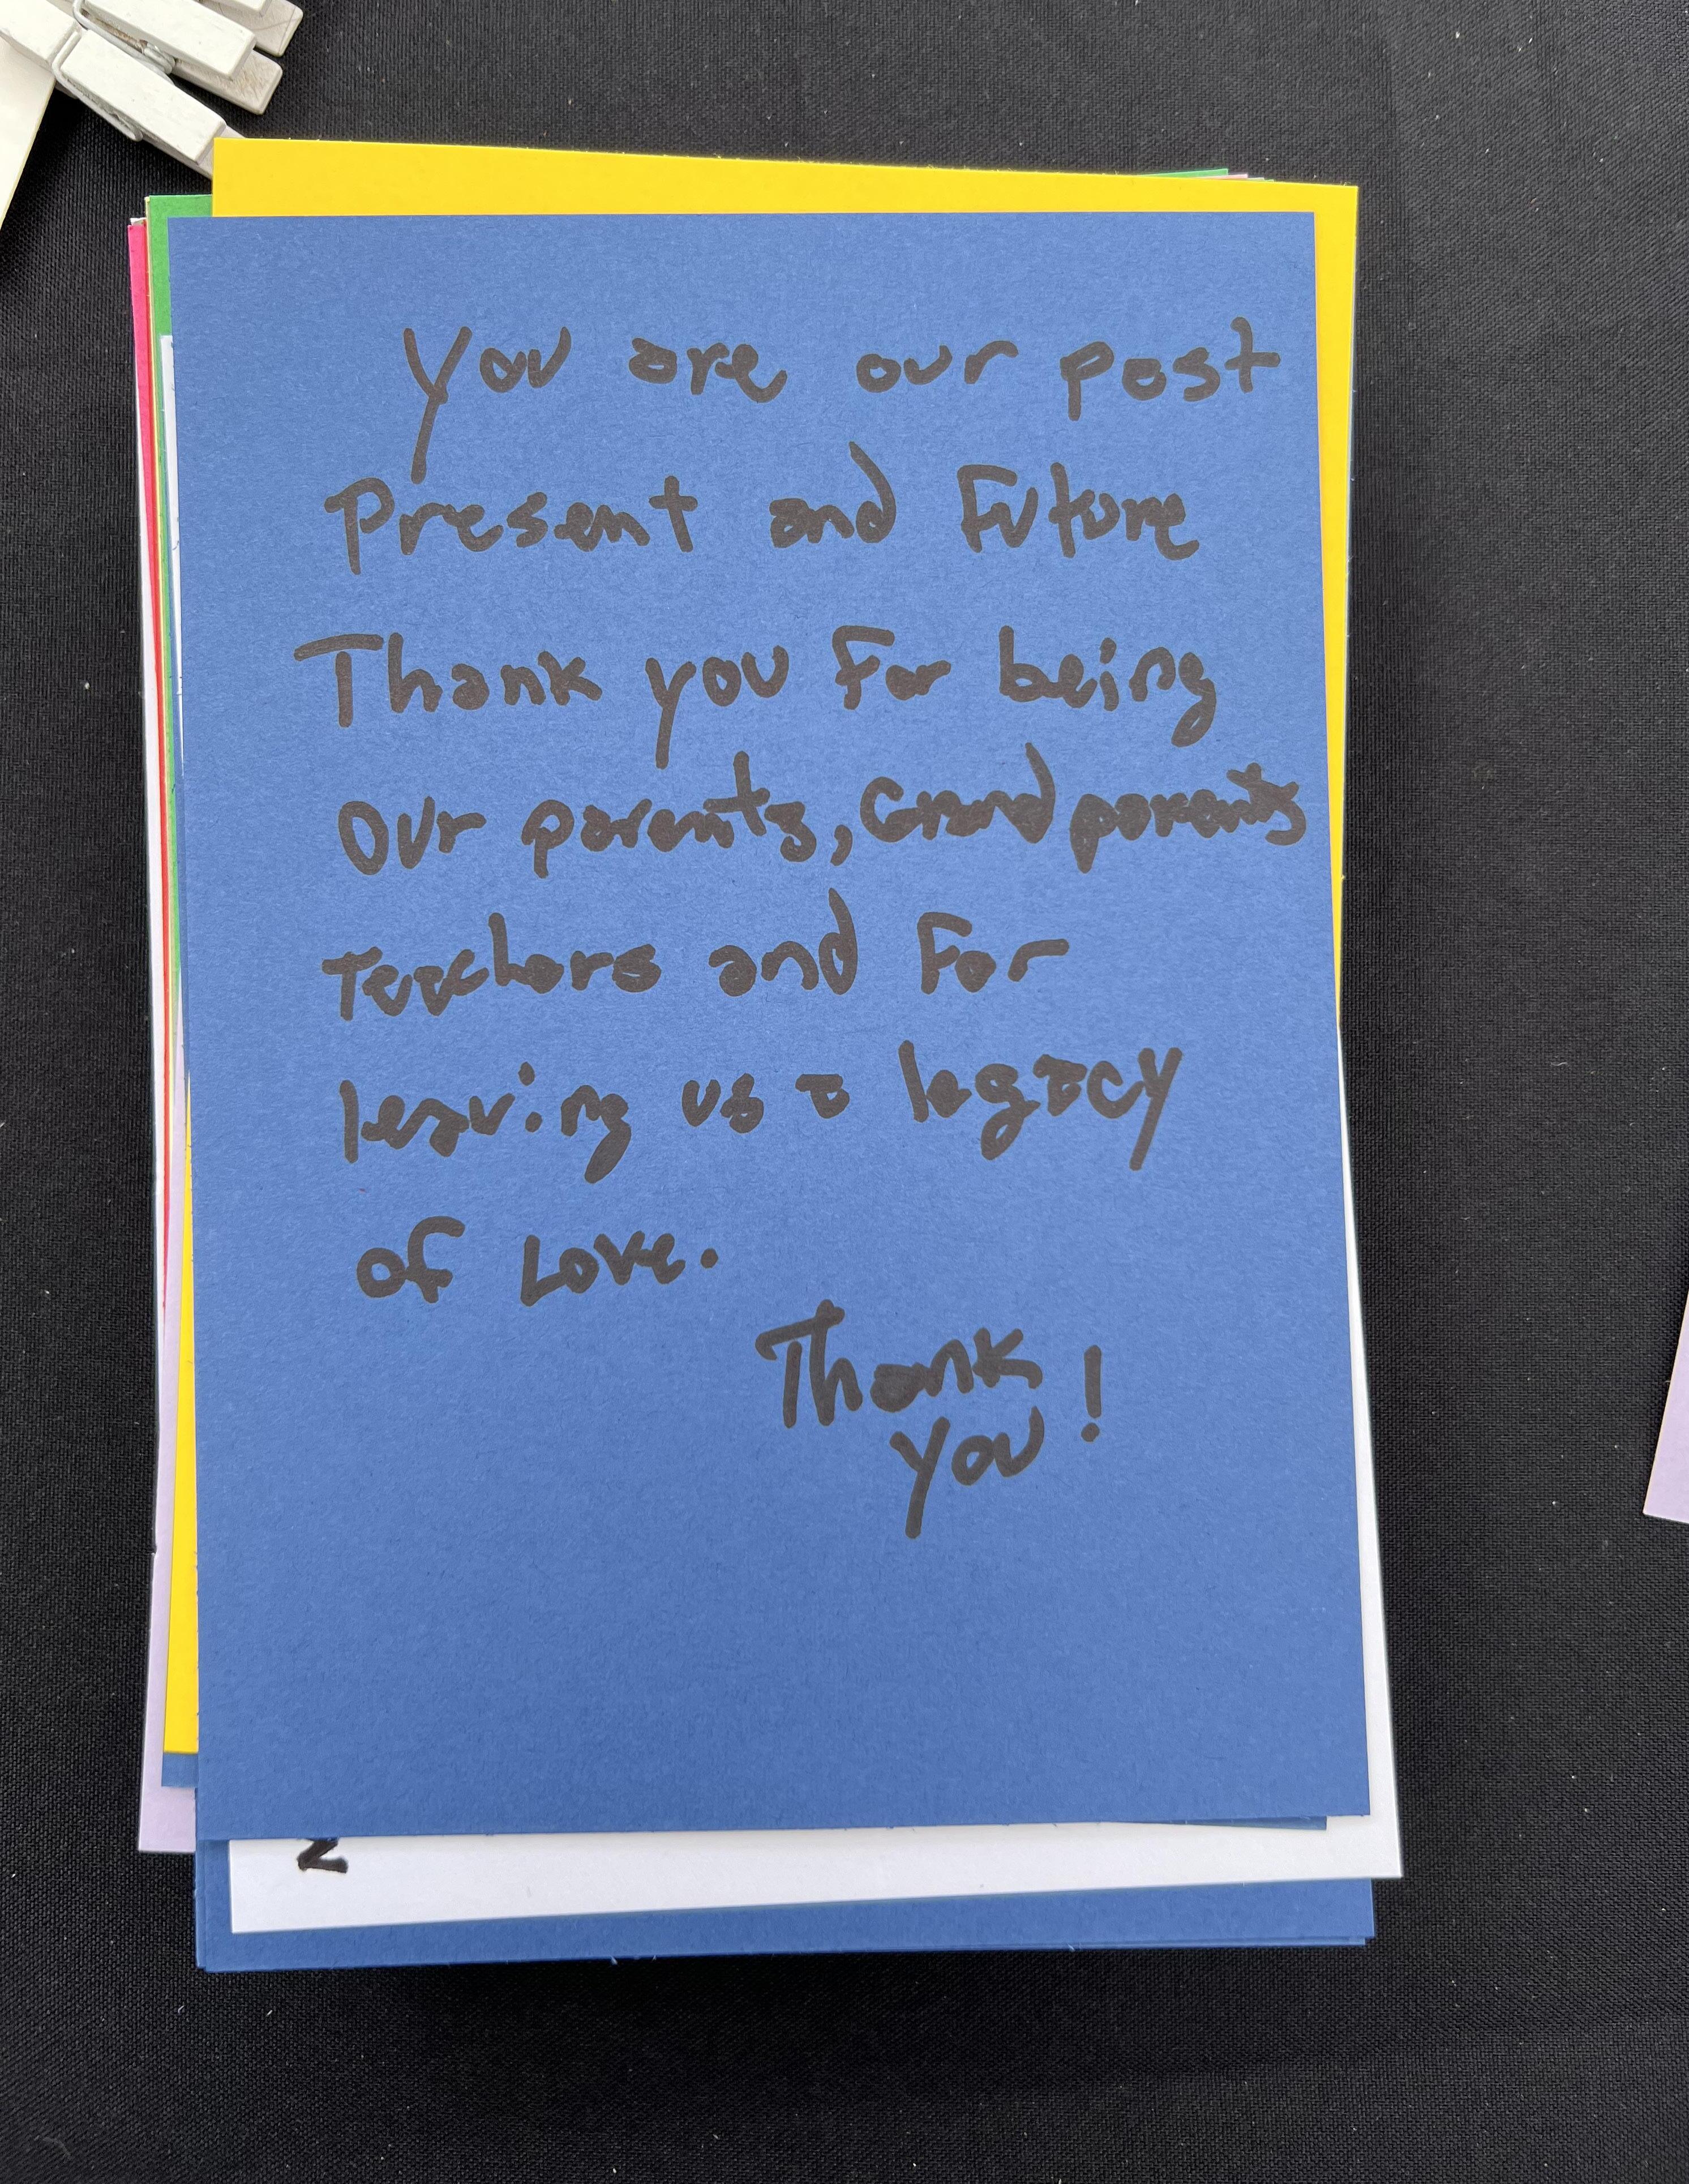 You are our past
Present and Future
Thank you For being
Our parents, Grandparents
Teachers and For
leaving us a legacy
of Love.
Thank
you!